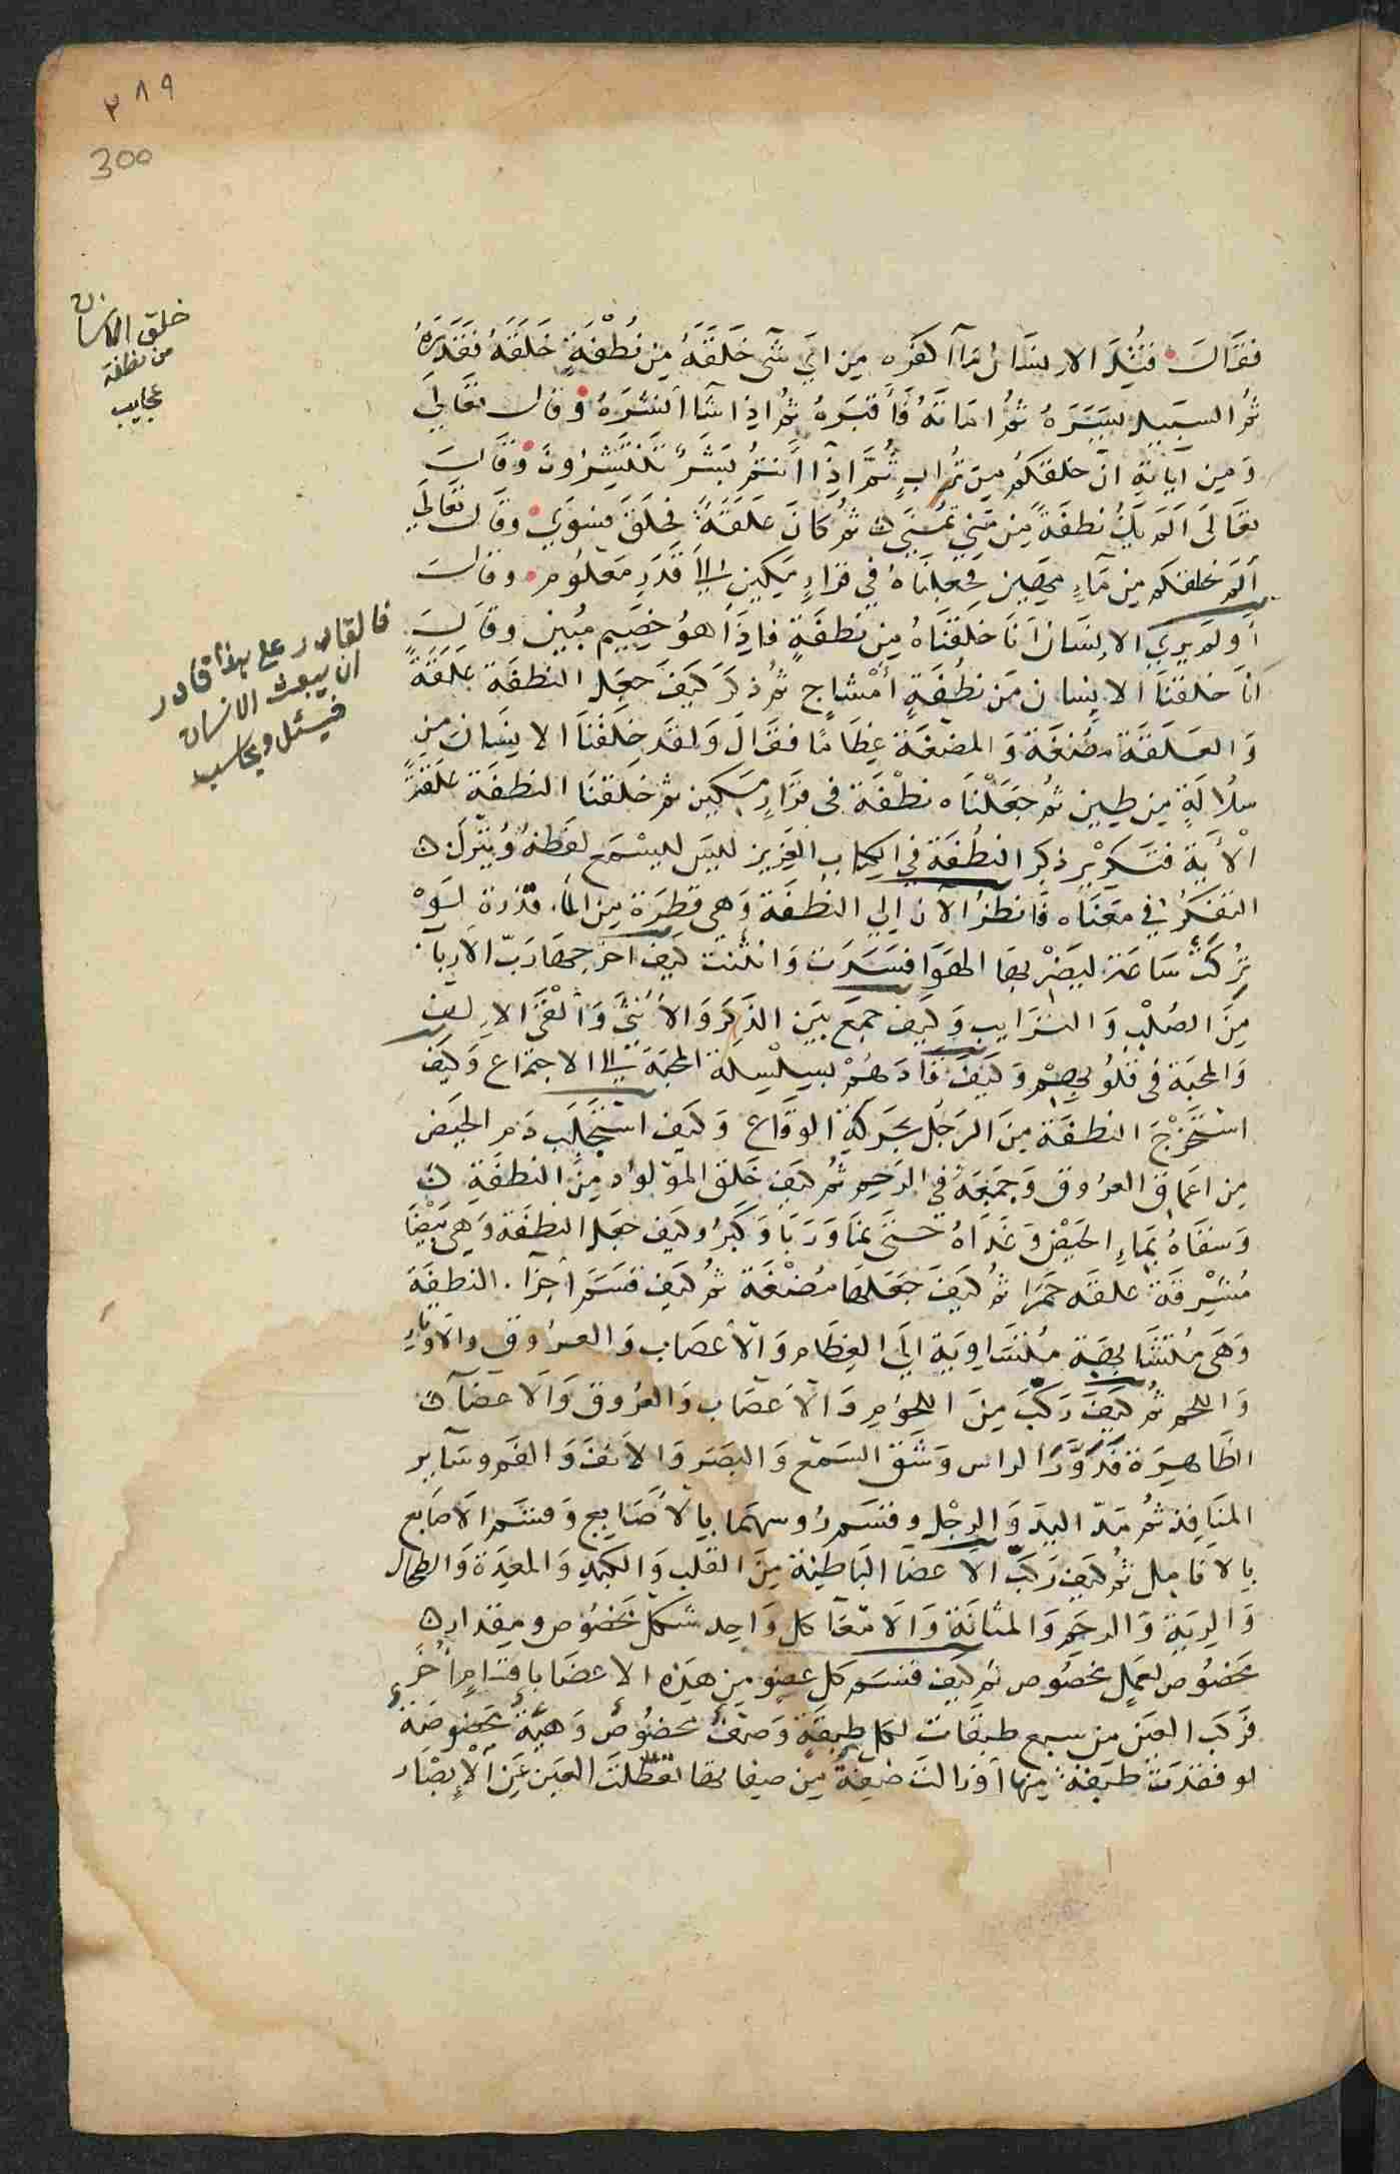 ٢٨٩
300
خلق الانسان
من نطفة
عجايب
فقال قتل الانسان ما اكفره من اي شي خلقه من نطفة خلقه فقدره
ثم السبيل يسره ثم اماته فأقبره ثم اذا شا انشره وقال تعالى
ومن آياته ان خلقكم من تراب ثم اذا أنتم بشر تنتشرون وقال
تعالى الم يك نطفة من مني تمنى ثم كان علقة فخلق فسوي وقال تعالى
ألم نخلقكم من مآء مهين فجعلناه في قرار مكين الى قدر معلوم وقال
أولم يري الانسان انا خلقناه من نطفة فاذا هو خصيم مبين وقال
انا خلقنا الانسان من نطفة أمشاج ثم ذكر كيف جعل النطفة علقة
والعلقة مضغة والمضغة عظاما فقال ولقد خلقنا الانسان من
سلالة من طين ثم جعلناه نطفة في قرار مكين ثم خلقنا النطفة علقة
الأية فتكرير ذكر النطفة في الكتاب العزيز ليس ليسمع لفظه ويترك
التفكر في معناه فانظر الآن الي النطفة وهي قطرة من الما قذرة لو
تركت ساعة ليضربها الهوا فسدت وانتنت كيف اخرجها رب الارباب
من الصلب والترايب وكيف جمع بين الذكر والأنثى وألقى الالفة
والمحبة في قلوبهم وكيف قادهم بسلسلة المحبة الى الاجتماع وكيف
استخرج النطفة من الرجل بحركة الوقاع وكيف استجلب دم الحيض
من اعماق العروق وجمعه في الرحم ثم كيف خلق المولود من النطفة
وسقاه بماء الحيض وغذاه حتى نما وربا وكبر وكيف جعل النطفة وهي بيضا
مشرقة علقة حمرا ثم كيف جعلها مضغة ثم كيف قسم أجزا النطفة
وهي متشابهة متساوية الى العظام والأعصاب والعروق والاوتار
واللحم ثم كيف ركب من اللحوم والأعصاب والعروق والاعضآ
الظاهرة فدور الراس وشق السمع والبصر والانف والفم وساير
المنافذ ثم مد اليد والرجل وقسم روسهما بالأصابع وقسم الاصابع
بالانامل ثم كيف ركب الاعضا الباطنة من القلب والكبد والمعدة والطحال
والرية والرحم والمثانة والامعا كل واحد شكل مخصوص ومقدار
مخصوص لعمل مخصوص ثم كيف قسم كل عضو من هذه الاعضا باقسام أخر
فركب العين من سبع طبقات لكل طبقة وصف مخصوص وهية مخصوصة
لو فقدت طبقة منها أوزالت صفة من صفاتها تعطلت العين عن الإبصار
فالقادر على هذا قادر
ان يبعث الانسان
فيسئل ويحاسب